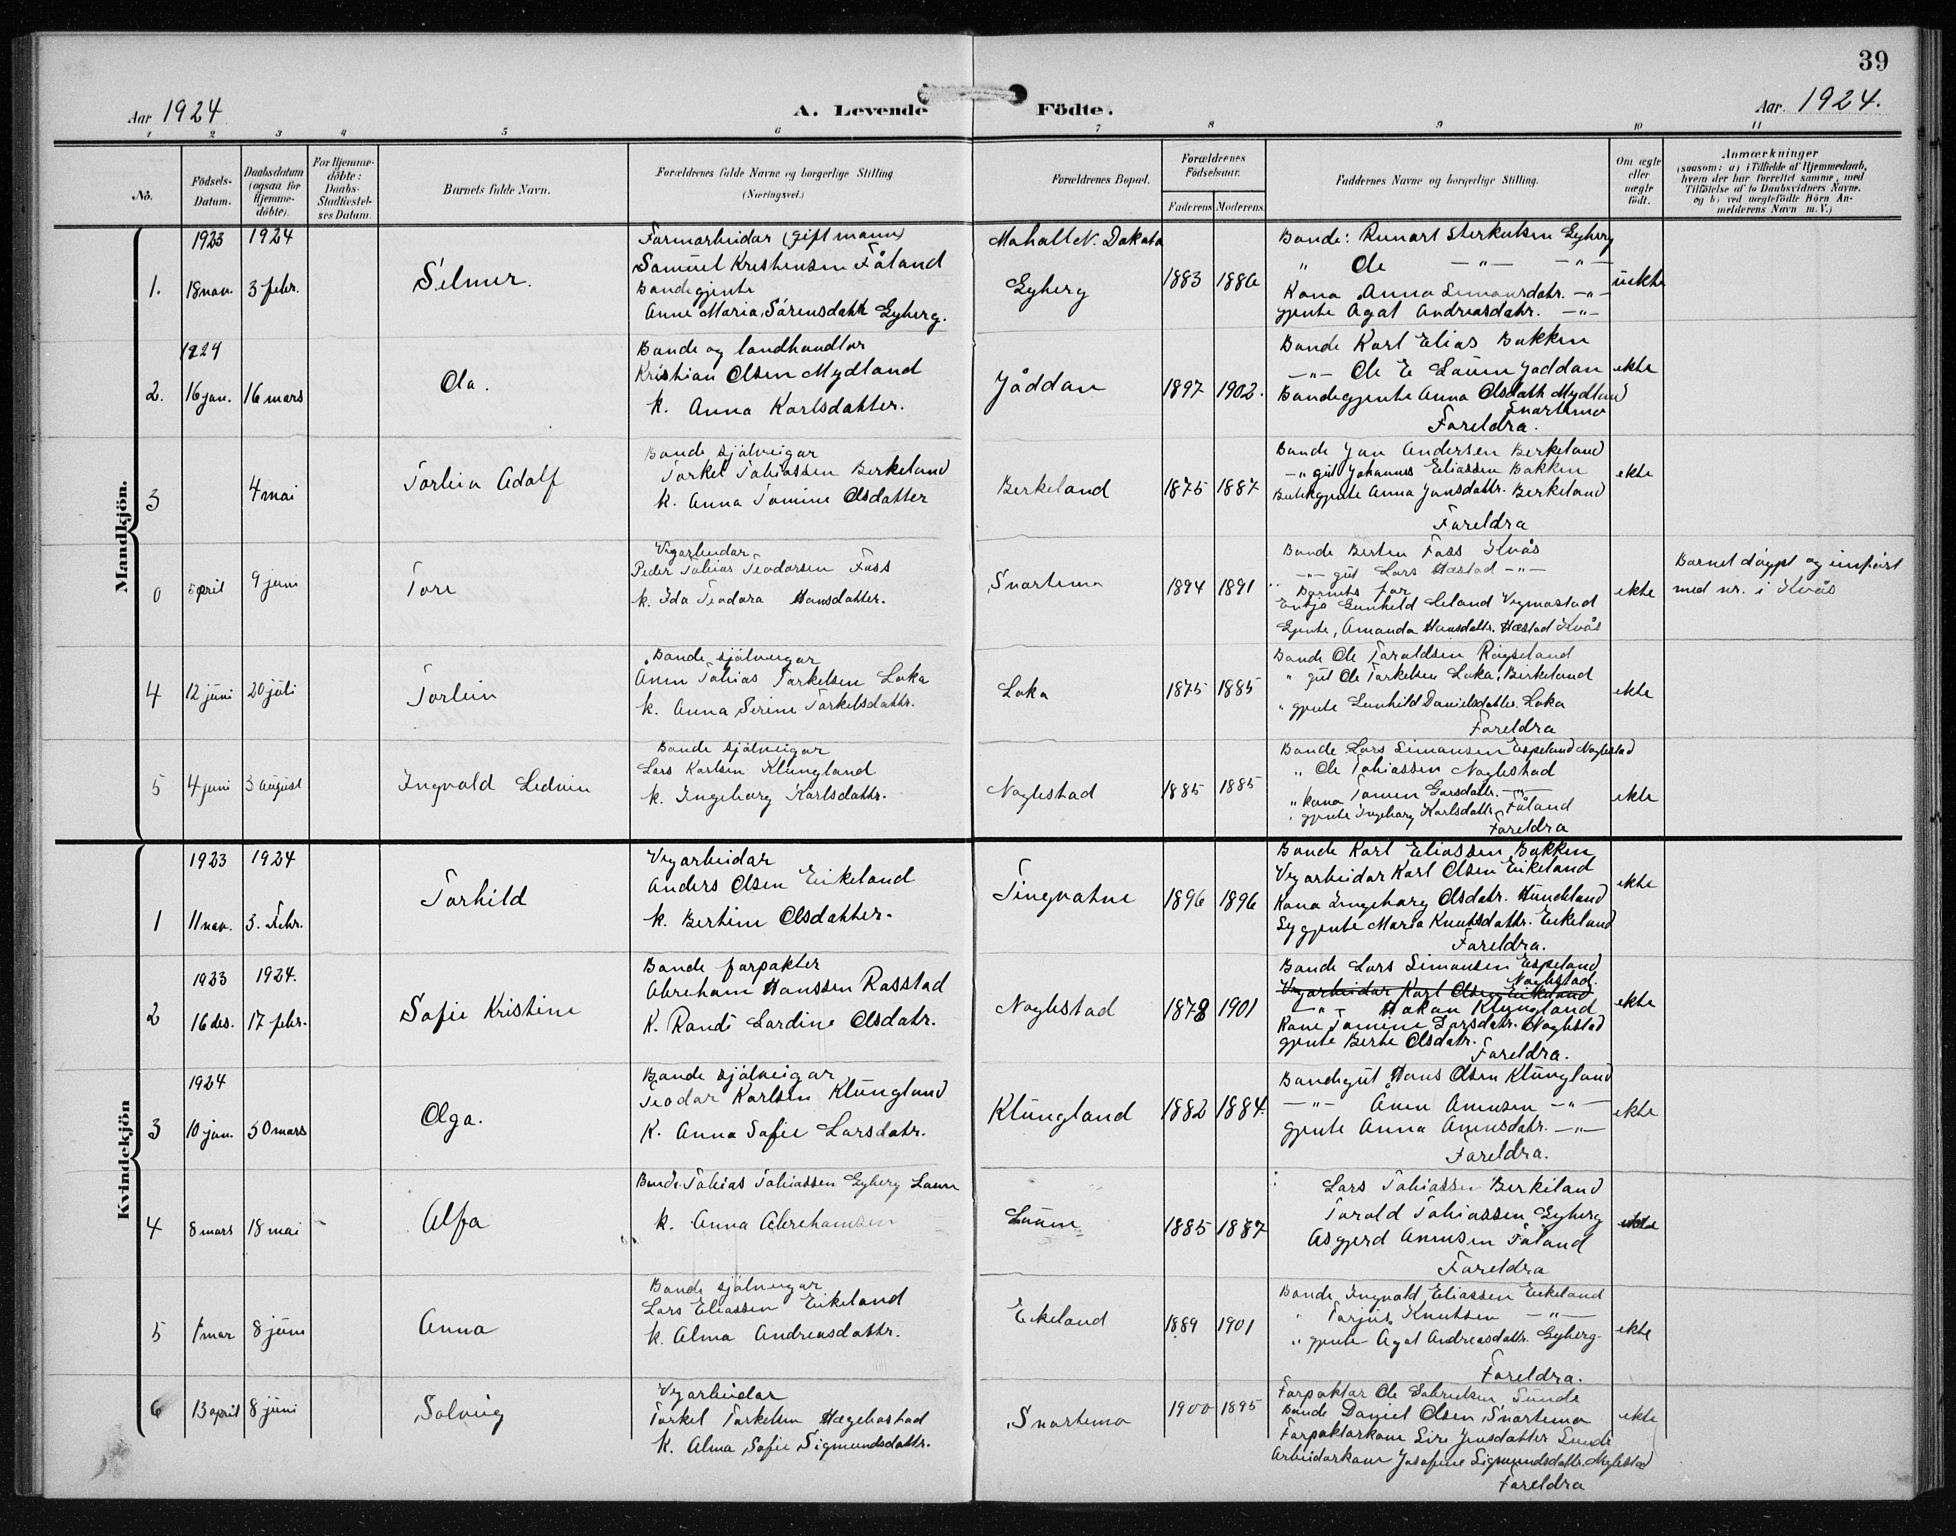 39
Aar 1924
A. Levende Födte.
Aar 1924.
1 2 3 4 5 6 7 8 9 10 11
No.
Födsels-Datum.
Daabsdatum (ogsaa for Hjemme-döbte).
For Hjemme-döbte: Daabs-Stadfæstel-ses Datum.
Barnets fulde Navn.
Forældrenes fulde Navne og borgerlige Stilling (Næringsvei.)
Forældrenes Bopæl.
Forældrenes Födselsaar.
Faderens Moderens
Faddernes Navne og borgerlige Stilling.
Om ægte eller uægte födt.
Anmærkninger
(saasom: a) i Tilfælde af Hjemmedaab, hvem der har forrettet samme, med Tilföielse af to Daabsvidners Navne. og b) ved uægtefödte Börn An-melderens Navn m. V.)
Mandkjön.
1. 1923 18 nov. 1924 3 febr. Selmer.
Farmarbeidar (gift mann)
Samuel Kristensen Fåland
Bondegjente
Anne Maria Sörensdattr Eyberg.
Mohall N. Dakota
Eyberg
1883 1886
Bonde: Runart Sterkulsen Eyberg
" Ole —"— —"—
Kona Anna Simonsdatr. —"—
gjente Agat Andreasdatr. —"—
uekte
2. 1924 16 jan. 16 mars Ola.
Bonde og landhandlar
Kristian Olsen Mydland
k. Anna Karlsdatter.
Jåddan
1897 1902.
Bonde Karl Elias Bakken
—"— Ole E Lauen Jaddan
Bondegjente Anna Olsdatr Mydland
Snartemo
Foreldra.
ekte
3 4 mai Torleiv Adolf
Bonde sjölveigar
Torkel Tobiassen Berkeland
k. Anna Tomine Olsdatter
Berkeland
1875 1887
Bonde Jan Andersen Berkeland
—"— gut Johannes Eliassen Bakken
gjente Anna Jansdattr. Berkeland
Foreldra
ekte
0 5 april 9 juni Tore
Vegarbeidar
Peder Tobias Teodorsen Foss
k. Ida Teodora Hansdatter.
Snartemo
1894 1891
Bonde Berten Foss Kvås
—"— gut Lars Hæstad —"—
Barnets far
Enkja Gunhild Leland Vegmostad
Gjente, Amanda Hansdattr. Hæstad Kvås
ekte
Barnet döypt og innfört
med nr. i Kvås
4 12 juni 20 juli Torlein
Bonde sjölveigar
Anen Tobias Torkelsen Loka
k. Anna Serine Torkelsdattr.
Loka
1875 1885
Bonde Ole Taraldsen Röyseland
" gut Ole Torkelsen Loka, Birkeland
" gjente Gunhild Danielsdatter. Loka
Foreldra
ekte
5 4 juni 3 august Ingvald Ledvin
Bonde sjölveigar
Lars Karlsen Klungland
k. Ingeborg Karlsdattr.
Noglestad
1885 1885
Bonde Lars Simonsen Espeland Noglestad
" Ole Tobiassen Noglestad
" kona Tomen Larsdattr. —"—
" gjente Ingeborg Karlsdattr. Fåland
Foreldra
ekte
Kvindekjön
1 1923 11 nov. 1924 3. Febr. Torhild
Vegarbeidar
Anders Olsen Eikeland
k. Bertine Olsdatter.
Tingvatne
1896 1896
Bonde Karl Eliassen Bakken
Vegarbeidar Karl Olsen Eikeland
Kona Ingeborg Olsdatr. Hundeland
Sygjente Maria Knutsdattr. Eikeland
Foreldra.
ekte
2 1923 16 des. 1924. 17 febr. Sofie Kristine
Bonde forpakter
Abreham Hanssen Rosstad
K. Randi Lardine Olsdatr.
Noglestad
1878 1901
Bonde Lars Simonsen Espeland
Noglestad.
Vegarbeidar Karl Olsen Eikeland
—"— Hakan Klungland
Kone Tomine Larsdatr. Noglestad
gjente Berte Olsdatr.
Foreldra.
ekte
3 1924 10 jan. 30 mars Olga.
Bonde sjölveigar
Teodor Karlsen Klungland
K. Anna Sofie Larsdatr.
Klungland
1882 1884.
Bondegut Hans Olsen Klungland
—"— Ånen Anensen —"—
gjente Anna Anensdatr. —"—
Foreldra.
ekte
4 8 mars 18 mai Alfa
Bonde Tobias Tobiassen Eyberg Lauen
k. Anna Abrehamsen
Lauen
1885 1887
Lars Tobiassen Berkeland
Tarald Tobiassen Eyberg
Asgjerd Anensen Fåland
Foreldra
ekte
5 1 mar 8 juni Anna
Bonde sjölveigar
Lars Eliassen Eikeland
k. Alma Andreasdattr.
Eikeland
1889 1901
Bonde Ingvald Eliassen Eikeland
" Tarjus Knutsen —"—
" gjente Agat Andreasdattr. Eyberg.
Foreldra.
ekte
6 13 april 8 juni Solveig
Vegarbeidar
Torkel Torkelsen Hægebostad
k. Alma Sofie Sigmundsdattr.
Snartemo
1900 1895
Forpaktar Ole Gabrielsen Sunde
Bonde Daniel Olsen Snartemo
Forpaktarkone Sire Jensdatter Sunde
Arbeidarkone Josefine Sigmundsdattr. Noglestad
Foreldra
ekte